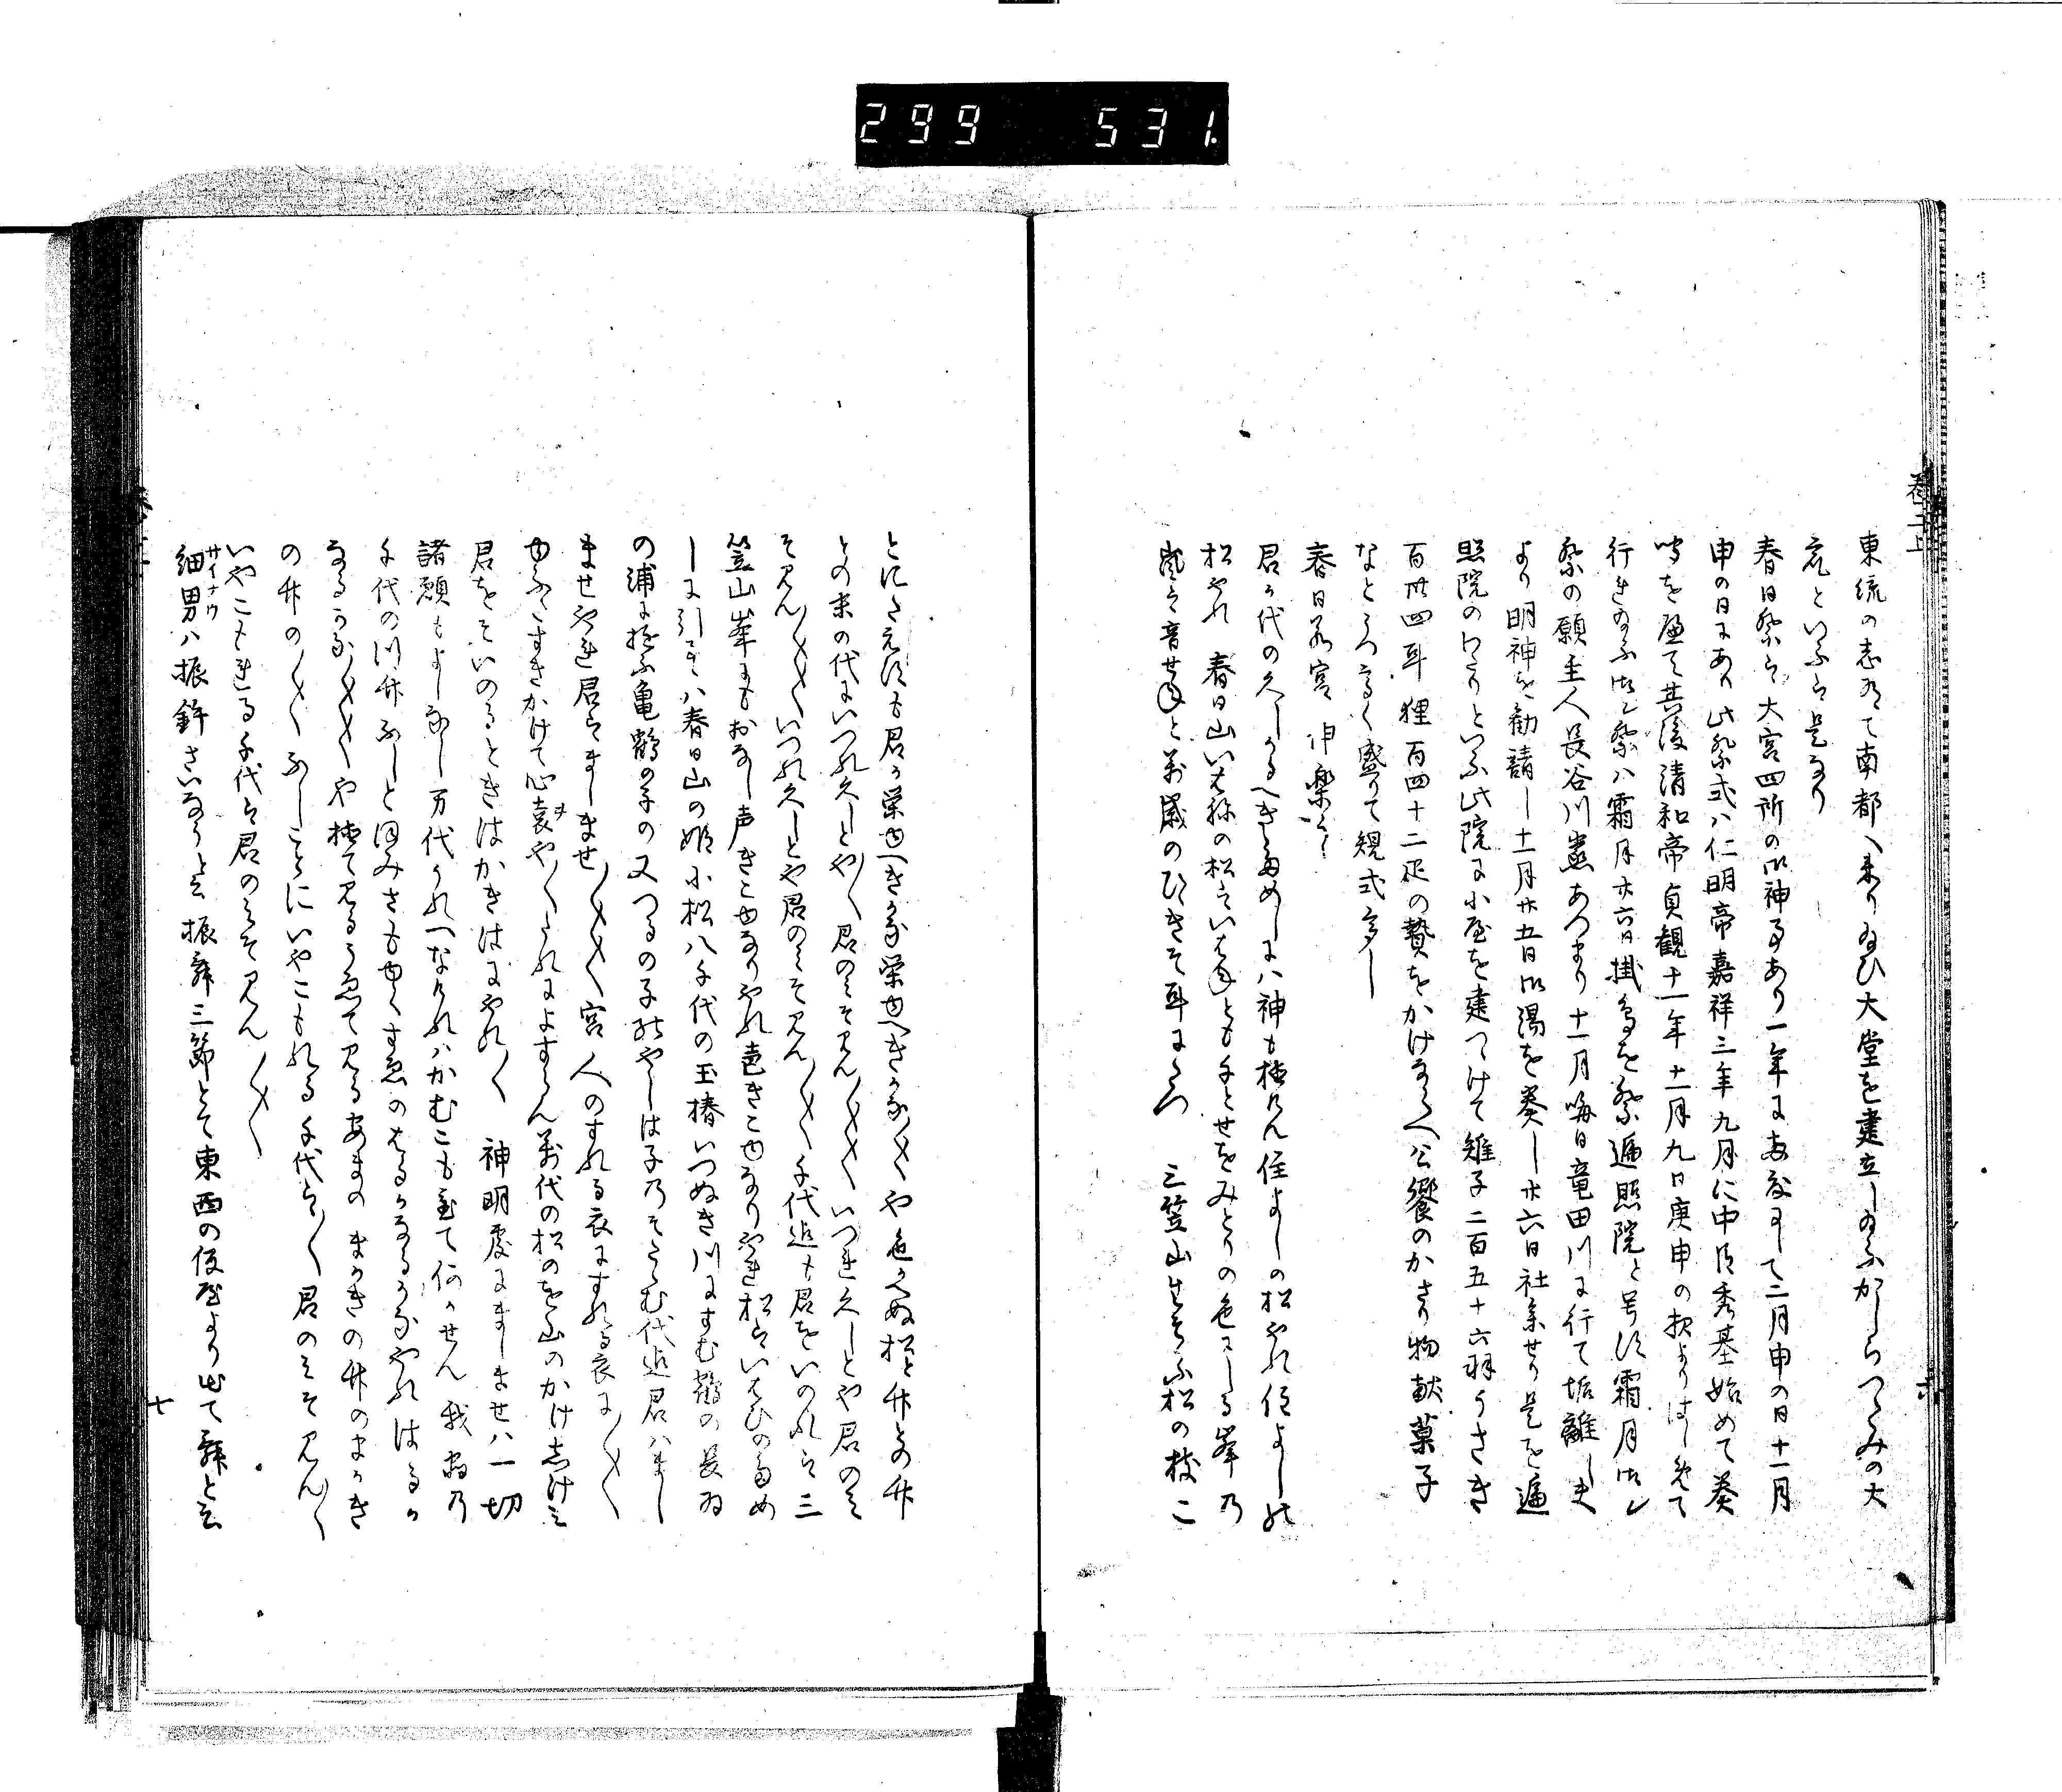 299 531.
東流の志有て南都へ来り給ひ大堂を建立し給ふかしらつゝみの大
春日祭ハ大宮四所の御神事あり一年にあまりて二月申の日十一月
申の日にあり此祭式ハ仁明帝嘉祥三年九月に中臣秀基始めて奏
其後清和帝貞観十一年十一月九日庚申の
行き給ふ御祭ハ霜月廿六日掛鳥を祭遍照院と号す霜月
祭の願主人長谷川党あつまり十一月晦日竜田川に行て垢離し夫
より明神を勧請し十一月廿五日御湯を奏し廿六日社参せり是を遍
照院のわたりといふ此院に小屋を建つけて雉子二百五十六羽うさき
百卅四耳狸百四十二疋の贄をかけならへ公饗のかさり物献菓子
なとうつたかく盛りて規式多し
春日若宮神楽ニ
君か代の久しかるへきためしにハ神も植けん住よしの松やれ住よしの
松やれ 春日山いはねの松ハいはねとも千とせをみとりの色にしる峯乃
嵐の音せねと万歳のひゝきそ耳にみつ 三笠山生そふ松の枝こ
とにたえすも君か栄ゆへきかな栄ゆへきかな〱や色かへぬ松と竹との竹
との末の代にいつれ久しとや〱君のミそみん〱〱いつれ久しとや君のミ
そみん〱〱いつれ久しとや君のミそみん〱千代迄も君をいのれハ三
笠山峯にもおなし声きこゆなりやれ声きこゆなりやれ松ハいはひのため
しに引きハ春日山の姫小松八千代の玉椿いつぬき川にすむ鶴の長ゐ
の浦に遊ふ亀鶴の子の又つるの子のやしは子乃そたむ代迄君ハまし
ませやれ君ハましませ〱〱宮人のすれる衣にすれる衣に〱
ゆふたすきかけて心を や〱たれによすらん万代の松のを山のかけしけミ
君をそいのるときはかきはにやれ〱 神明慶にましませハ一切
諸願もよしなし万代かれへなけれハかむこも立て何かせん我君乃
千代の川竹ふしとほみさもゆくすゑのはるかなるかなやれはるか
なるかな〱〱や植てみるうゑてみるあまのまかきの竹のまかき
の竹の〱〱ふしことにいやこもれる千代ハ〱君のミそみん〱
いやこもれる千代ハ君のミそみん〱〱
細男ハ振鉾さいなうと云振舞三節とて東西の仮屋より出て舞と云
サイナウ
七